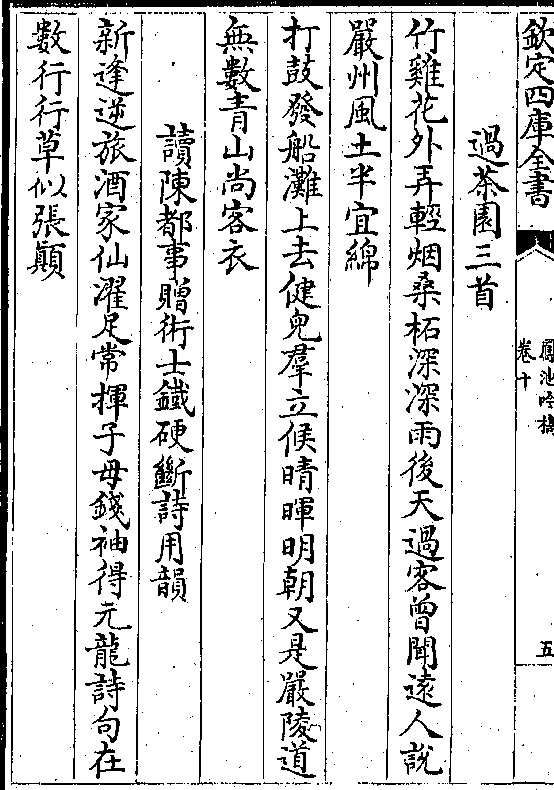 欽定四庫全書
鳳池吟槁
卷十
五
過茶園三首
竹雞花外弄輕烟桑柘深深雨後天過客曾聞遠人說
嚴州風土半宜綿
打鼓發船灘上去健兒羣立候晴暉明朝又是嚴陵道
無數青山尚客衣
讀陳都事贈術士鐵硬斷詩用韻
新逢逆旅酒家仙濯足常揮子母錢袖得元龍詩句在
數行行草似張顛